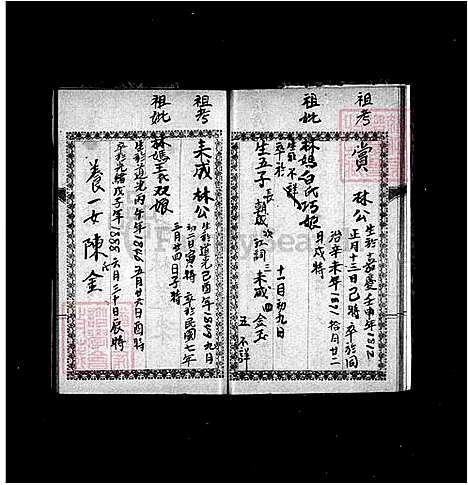 祖考
賞 林公 生於嘉慶壬申年1812
正月十三日己時 卒於同
治辛未年1871 拾月廿二
日戌時
祖妣
林媽白氏巧娘
生 不詳
卒於 十一月初九日
生五子 長 朝成 次 三 未成 四 金玉
五 不詳
祖考
未成 林公 生於道光己酉年1849九月
初二日寅時 卒於民國七年
三月廿四日子時
祖妣
林媽 双娘
生於道光丙午年1846五月廿六日酉時
卒於光緒戊子年1888六月三十日辰時
養一女陳金